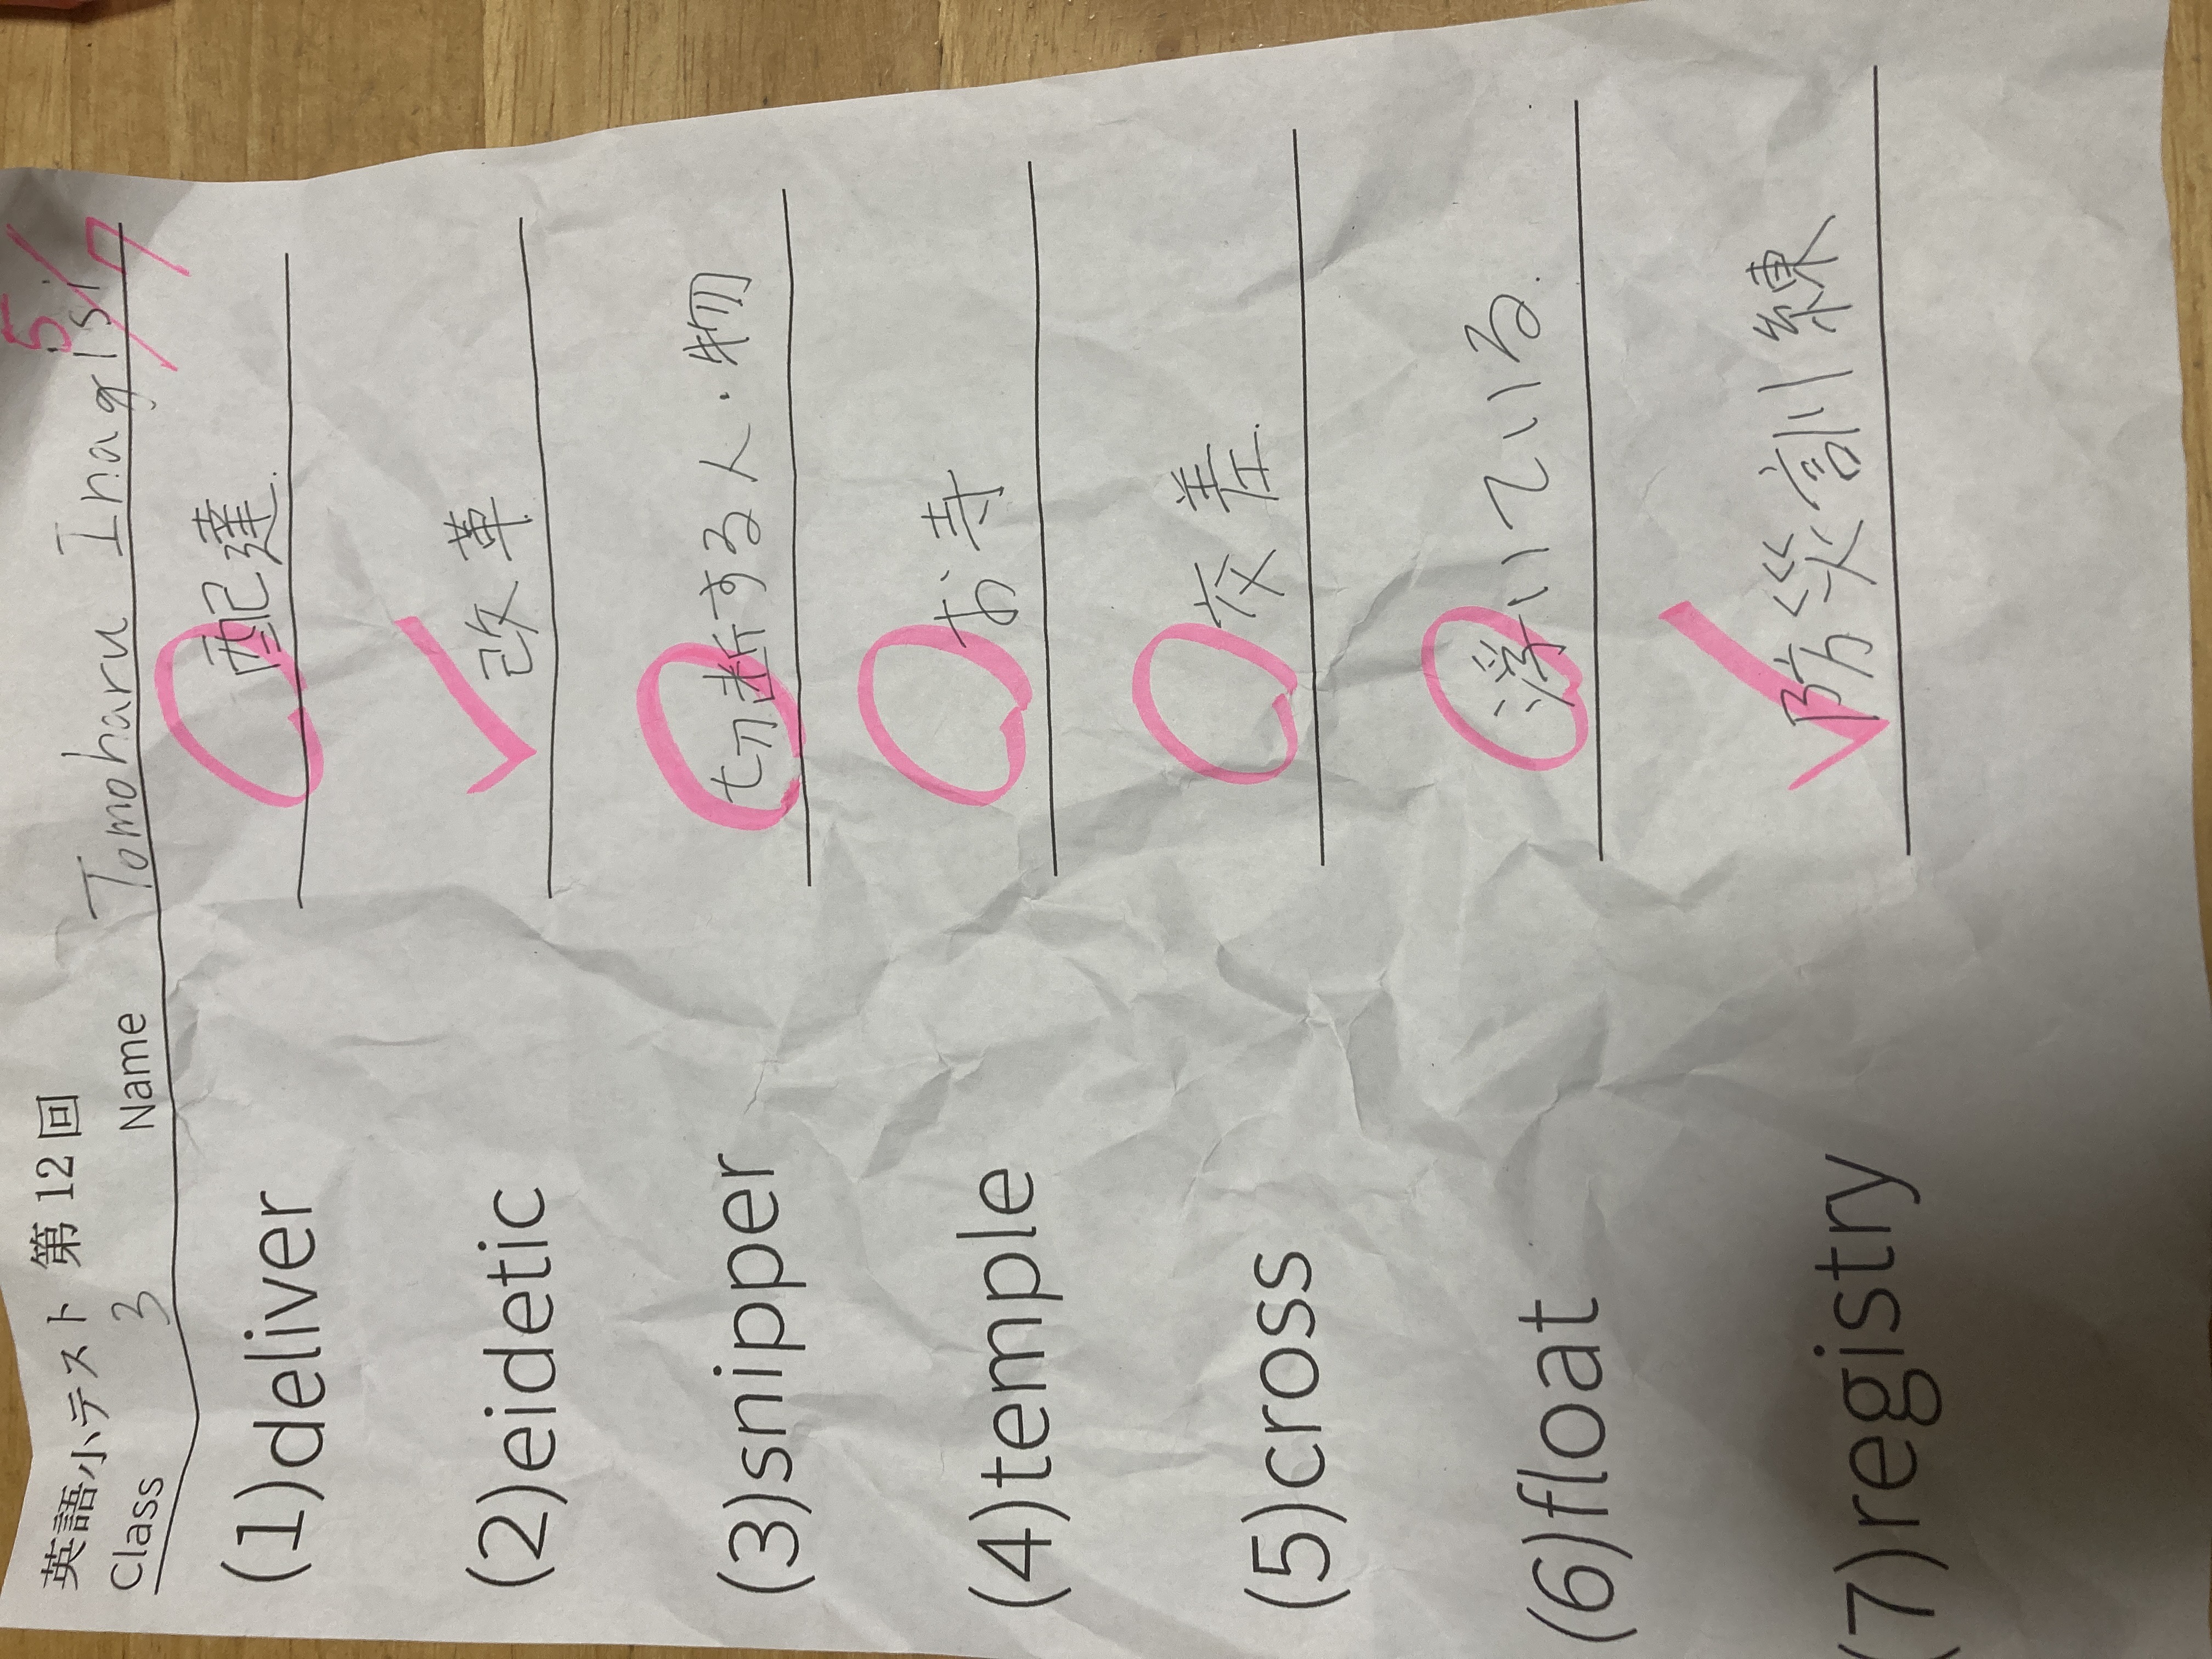 英語小テスト 第12回
5/7
Class 3 Name Tomoharu Inagisi
(1)deliver 配達
(2)eidetic 改革
(3)snipper 切断する人・物
(4)temple お寺
(5)cross 交差
(6)float 浮いている
(7)registry 防災訓練